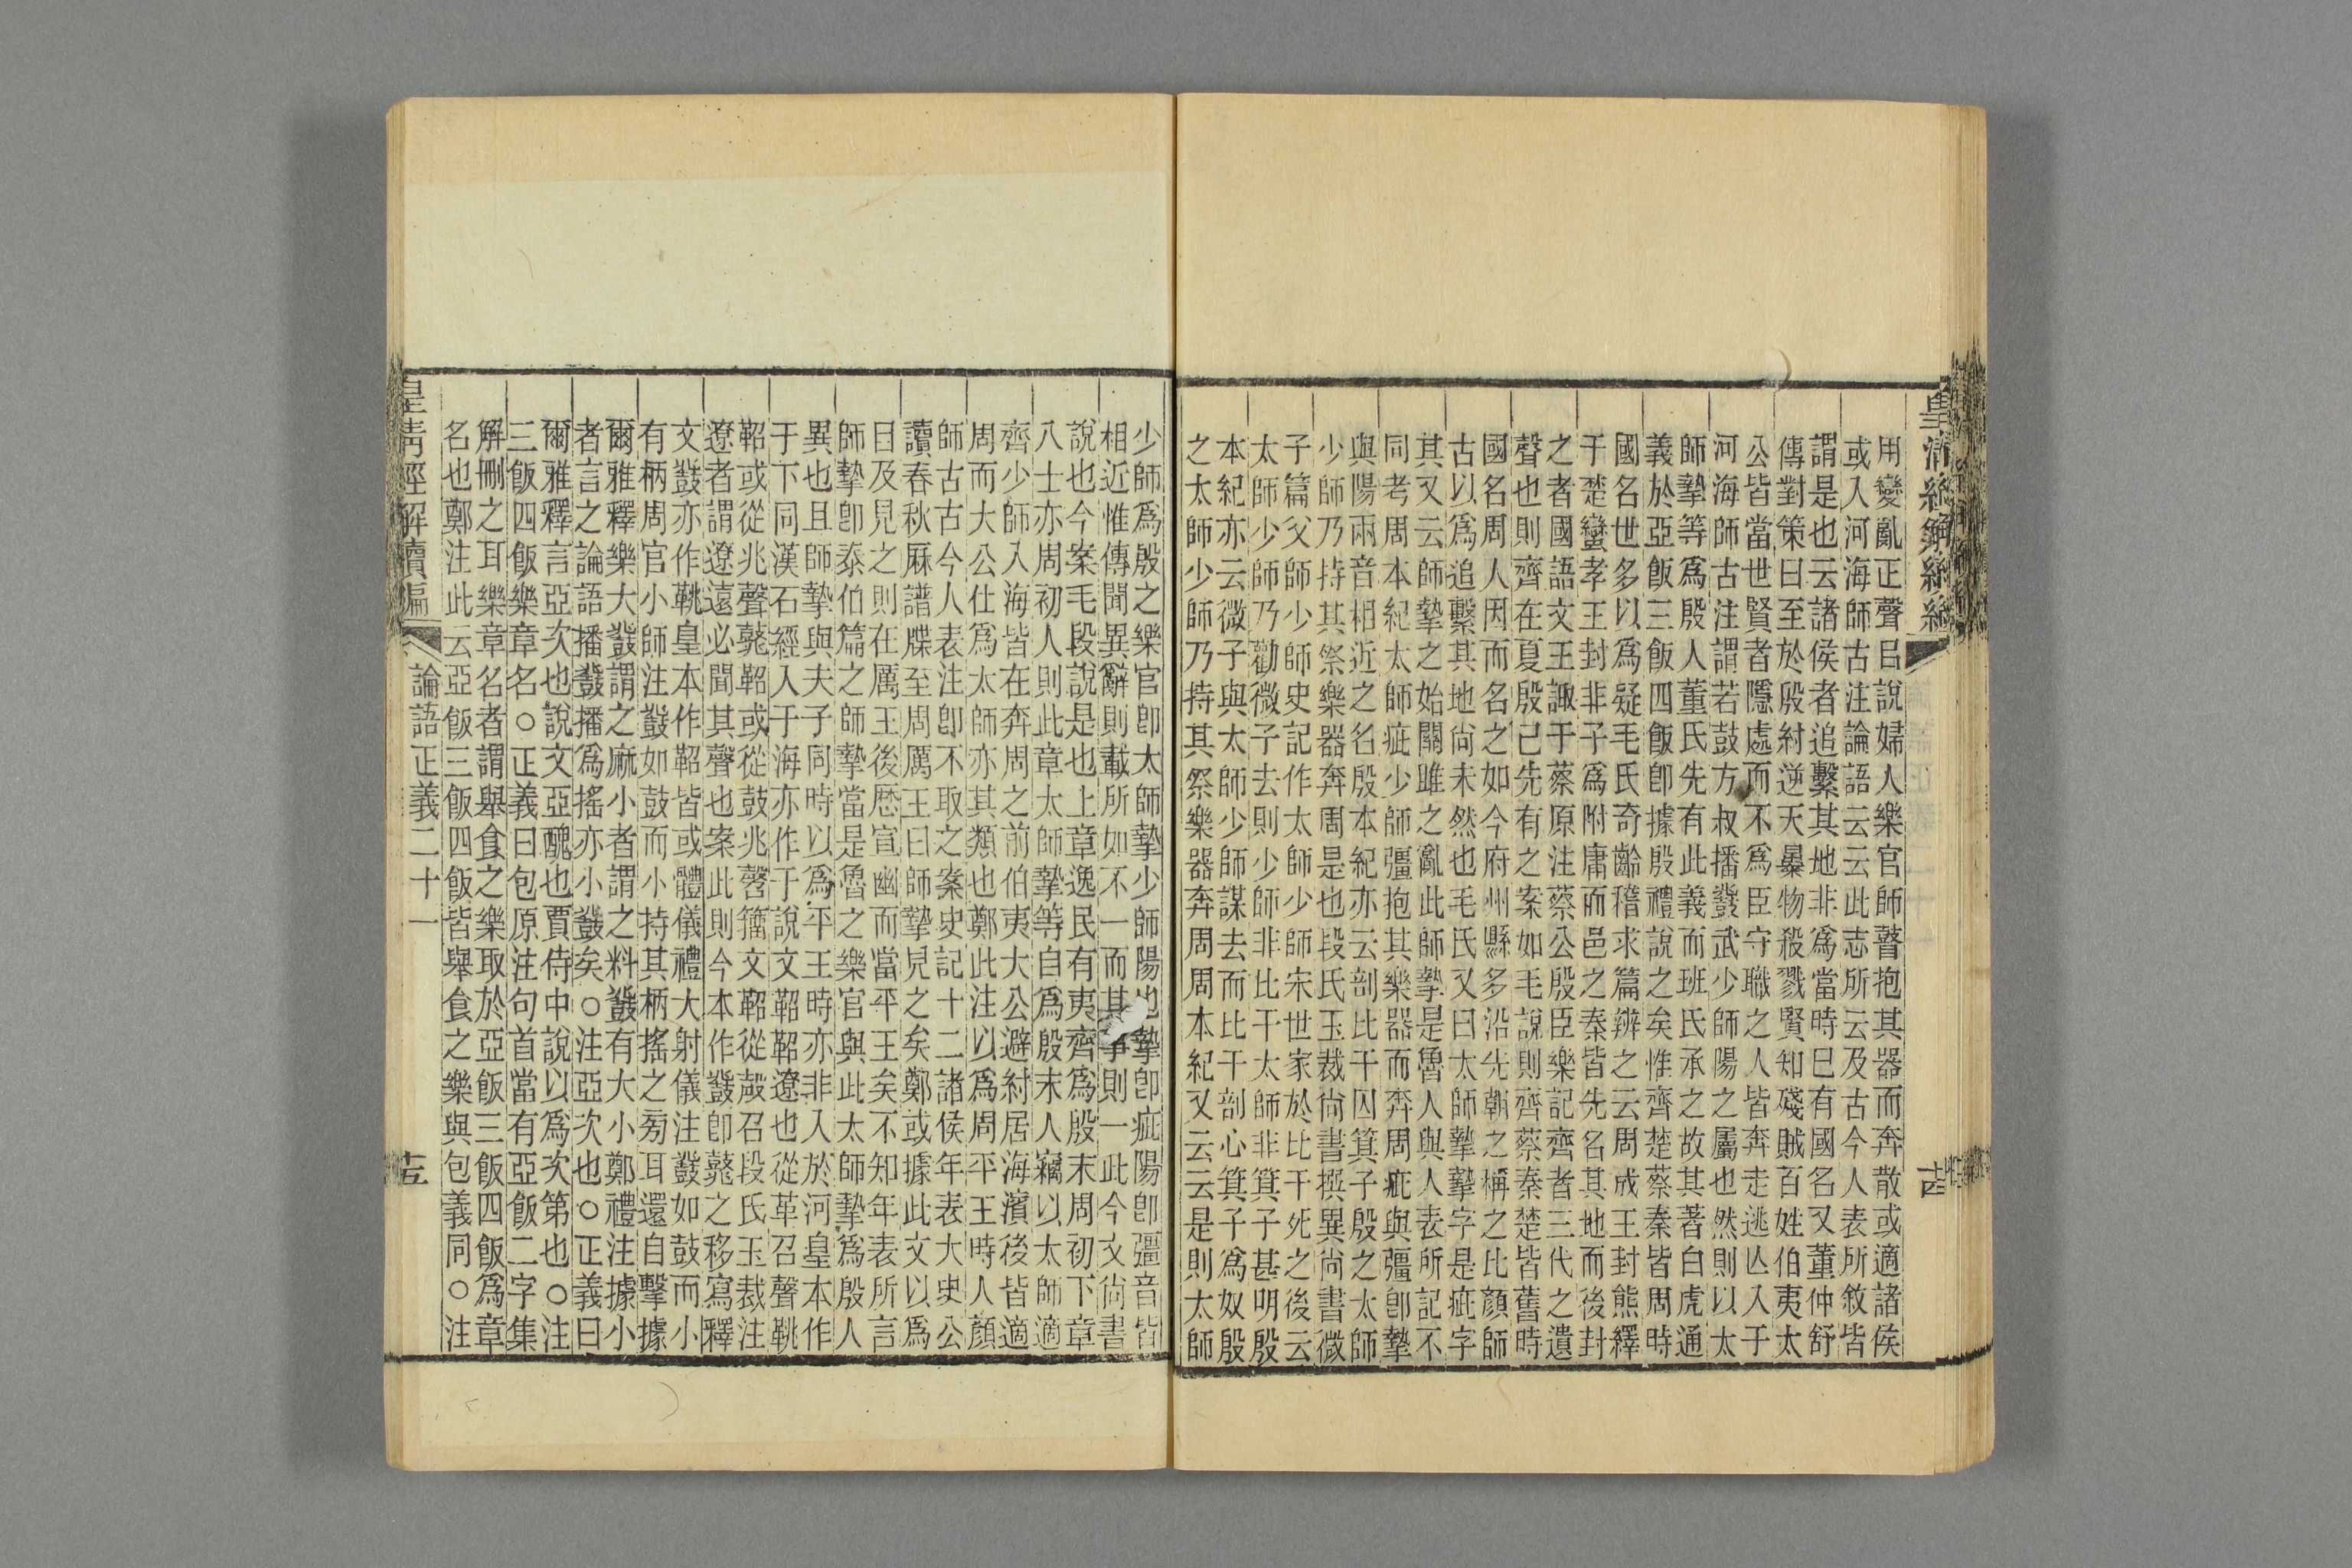 用變亂正聲㠯說婦人樂官師瞽抱其器而奔散或適諸侯
或入河海師古注論語云云此志所云及古今人表所敘皆
謂是也云諸侯者追繫其地非爲當時巳有國名又董仲舒
傳對策曰至於殷紂逆天暴物殺戮賢知殘賊百姓伯夷太
公皆當世賢者隱處而不爲臣守職之人皆奔走逃亾入于
河海師古注謂若鼓方叔播鼗武少師陽之屬也然則以太
師摯等爲殷人董氏先有此義而班氏承之故其著白虎通
義於亞飯三飯四飯卽據殷禮說之矣惟齊楚蔡秦皆周時
國名世多以爲疑毛氏奇齡稽求篇辨之云周成王封熊繹
于楚蠻孝王封非子爲附庸而邑之秦皆先名其地而後封
之者國語文王諏于蔡原注蔡公殷臣樂記齊者三代之遺
聲也則齊在夏殷已先有之案如毛說則齊蔡秦楚皆舊時
國名周人因而名之如今府州縣多沿先朝之稱之比顏師
古以爲追繫其地尙未然也毛氏又曰太師摯摯字是疵字
其又云師摯之始關雎之亂此師摯是魯人與人表所記不
同考周本紀太師疵少師彊抱其樂器而奔周疵與彊卽摯
與陽兩音相近之名殷本紀亦云剖比干囚箕子殷之太師
少師乃持其祭樂器奔周是也段氏玉裁尙書撰異尙書微
子篇父師少師史記作太師少師宋世家於比干死之後云
太師少師乃勸微子去則少師非比干太師非箕子甚明殷
本紀亦云微子與太師少師謀去而比干剖心箕子爲奴殷
之太師少師乃持其祭樂器奔周周本紀又云云是則太師
皇清經解續編
十四
少師爲殷之樂官卽太師摯少師陽也摯卽疵陽卽彊音皆
相近惟傳聞異辭則載所如不一而其事則一此今文尙書
說也今案毛段說是也上章逸民有夷齊爲殷末周初下章
八士亦周初人則此章太師摯等自爲殷末人竊以太師適
齊少師入海皆在奔周之前伯夷大公避紂居海濱後皆適
周而大公仕爲太師亦其類也鄭此注以爲周平王時人顏
師古古今人表注卽不取之案史記十二諸侯年表大史公
讀春秋厤譜牒至周厲王曰師摯見之矣鄭或據此文以爲
目及見之則在厲王後厯宣幽而當平王矣不知年表所言
師摯卽泰伯篇之師摯當是魯之樂官與此太師摯爲殷人
異也且師摯與夫子同時以爲平王時亦非入於河皇本作
于下同漢石經入于海亦作于說文鞀鞀遼也從革召聲鞉
鞀或從兆聲鼗鞀或從鼓兆磬籀文鞀從殸召段氏玉裁注
遼者謂遼遠必聞其聲也案此則今本作鼗卽鼗之移寫釋
文鼗亦作鞉皇本作鞀皆或體儀禮大射儀注鼗如鼓而小
有柄周官小師注鼗如鼓而小持其柄搖之旁耳還自擊據
爾雅釋樂大鼗謂之麻小者謂之料鼗有大小鄭禮注據小
者言之論語播鼗播爲搖亦小鼗矣○注亞次也○正義曰
爾雅釋言亞次也說文亞醜也賈侍中說以爲次第也○注
三飯四飯樂章名○正義曰包原注句首當有亞飯二字集
解刪之耳樂章名者謂舉食之樂取於亞飯三飯四飯爲章
名也鄭注此云亞飯三飯四飯皆舉食之樂與包義同○注
皇清經解續編 論語正義二十一 十五